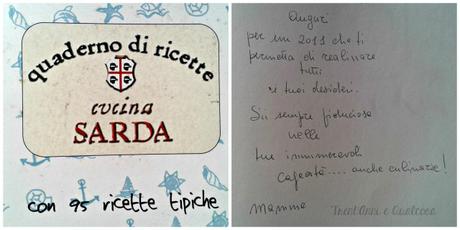 quaderno di ricette
cucina
SARDA
con 95 ricette tipiche
Auguri
per un 2011 che ti
permetta di realizzare
tutti
i tuoi desideri.
Sii sempre fiduciosa
nelle
tue innumerevoli
capacità.... anche culinarie!
Mamma
Trent'Anni e Qualcosa